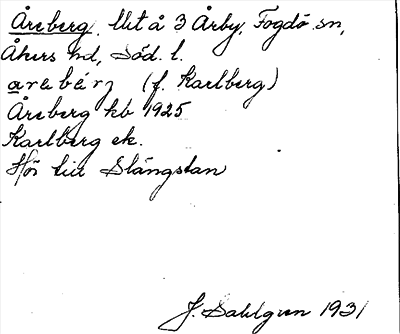 Åreberg, Utt å 3 Årby, Fogdö sn,
Åkers hd, Söd. l.
arebärj (f. Karlberg)
Åreberg kb 1925
Karlberg ek.
Hör till Slängstan
J. Sahlgren 1931